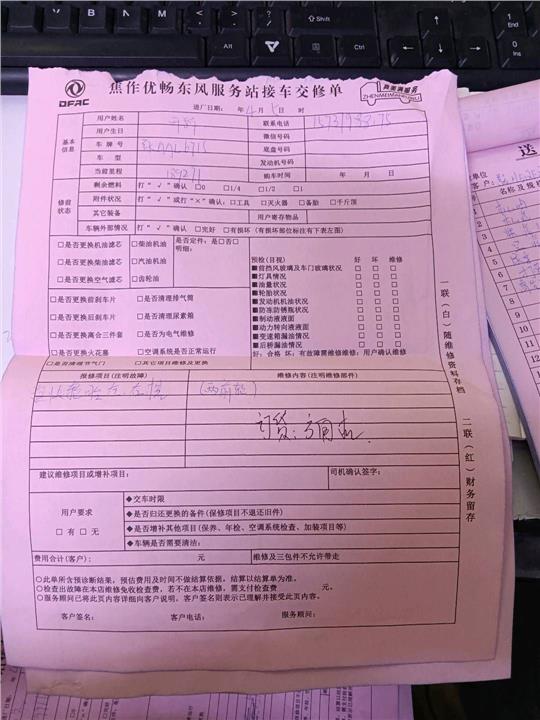 Shift
Alt
Ctrl
1
End
0
Ins
DFAC
焦作优畅东风服务站接车交修单
真美满服务
ZHENMEIMANFUWU
进厂日期: 年4月5日 时
基本信息
用户姓名
联系电话
用户生日
微信号码
车牌号
底盘号码
车型
发动机号码
当前里程
购车时间 年 月 日
修前状态
剩余燃料 打“√”确认 □0 □1/4 □1/2 □1
附件状况 打“√”或打“×”确认:□工具 □灭火器 □备胎 □千斤顶
其它装备
用户寄存物品
车辆外部情况 打“√”确认 □完好 □有损坏(有损坏部位标注有下表左图)
□是否更换机油滤芯 □柴油机油 是否定件:是□否□
明细:
□是否更换柴油滤芯 □汽油机油
□是否更换空气滤芯 □齿轮油
□是否更换前刹车片 □是否清理排气筒
□是否更换后刹车片 □是否清理尿素箱
□是否更换离合三件套 □是否为电气维修
□是否更换火花塞 □空调系统是否正常运行
□是否清理节气门 □其它项目维修及更换
预检(目视) 好 坏 维修
■前挡风玻璃及车门玻璃状况 □ □ □
■灯具情况 □ □ □
■油量状况 □ □ □
■轮胎状况 □ □ □
■发动机机油状况 □ □ □
■防冻防锈瓶状况 □ □ □
■制动液液面 □ □ □
■动力转向液面 □ □ □
■变速箱漏油情况 □ □ □
■后桥漏油情况 □ □ □
好:合格 坏:有故障需维修维修:用户确认维修
报修项目(注明故障)
维修内容(注明维修部件)
订货:
建议维修项目或增补项目:
司机确认签字:
用户要求
□有 □无
◆交车时限
◆是否归还更换的备件(保修项目不退还旧件)
◆是否增补其他项目(保养、年检、空调系统检查、加装项目等)
◆车辆是否需要清洁:
费用合计(客户): 元
维修及三包件不允许带走
○此单所含预诊断结果,预估费用及时间不做结算依据。结算以结算单为准。
○检查出故障在本店维修免收检查费,若不在本店维修,需支付检查费 元。
○服务顾问已将此页内容详细向客户说明。客户签名则表示已理解并接受此页内容。
客户签名: 客户电话: 服务顾问:
一联(白)随维修资料存档
二联(红)财务留存
送
单位
客户:
名称及规格